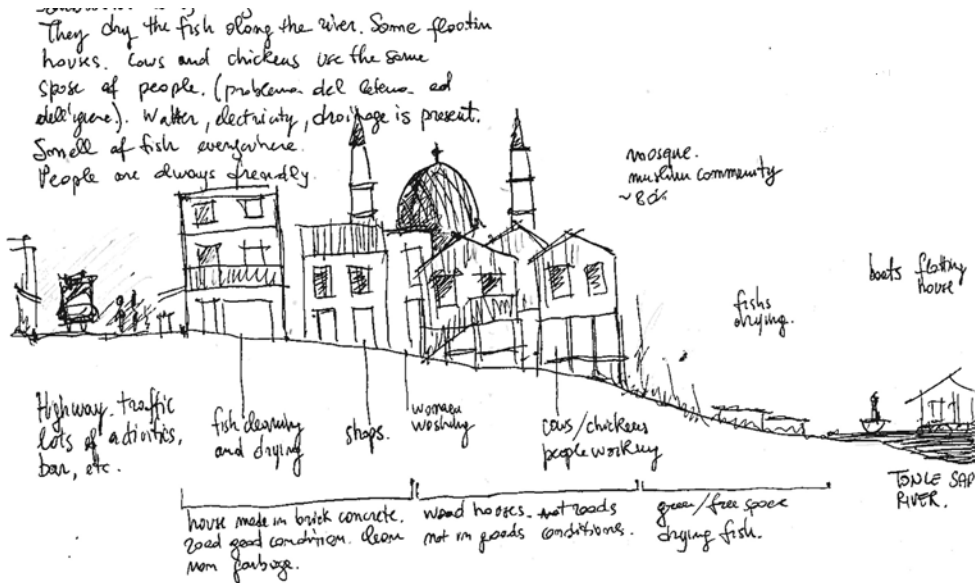 They dry the fish along the river. Some floatin
houses. Cows and chickens use the same
spose of people. (problema del letame ed
dell'igiene). Watter, electricity, drainage is present.
Smell of fish everywhere.
People are always friendly.
mosque.
muslim community
boats flotting
house
fishs
drying.
Highway. traffic
lots of activities,
bar, etc.
fish cleaning
and drying
shops.
woman
washing
cows/chickens
people working
TONLE SAP
RIVER.
house made in brick concrete.
road good condition. clean
non garbage.
wood houses. not roads
not in goods conditions.
green/free space
drying fish.